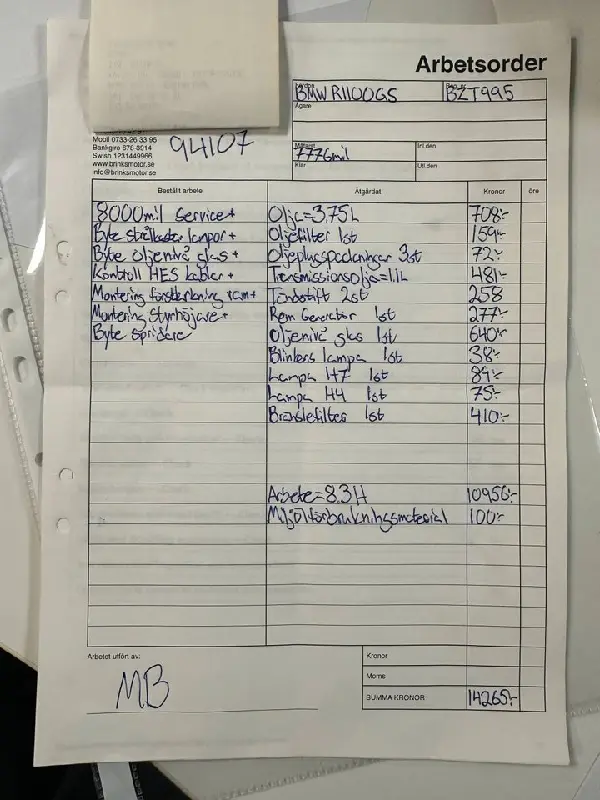 Arbetsorder
BMW R1100GS
BZT995
Ägare
Mobil 0733-26 33 95
Bankgiro 876-8014
Swish 1231449966
www.brinksmotor.se
info@brinksmotor.se
94107
7776mil
Inl den
Utl den
Beställt arbete Åtgärdat Kronor öre
8000mil Service+ Olja=3.75L 708:-
Byte strålkastar lampor+ Oljefilter 1st 159:-
Byte oljenivå glas+ Oljepluggspackningar 3st 72:-
Kontroll HES kablar+ Transmissionsolja=1,1L 481:-
Montering förstärkning ram+ Tändstift 2st 258
Montering Styrhöjare+ Rem Generator 1st 277:-
Byte spridare Oljenivå glas 1st 640:-
Blinkers lampa 1st 38:-
Lampa H7 1st 84:-
Lampa H4 1st 75:-
Bränslefilter 1st 410:-
Arbete=8.3H 10956:-
Miljö/förbrukningsmaterial 100:-
Arbetet utfört av:
MB
Kronor
Moms
SUMMA KRONOR 14265:-